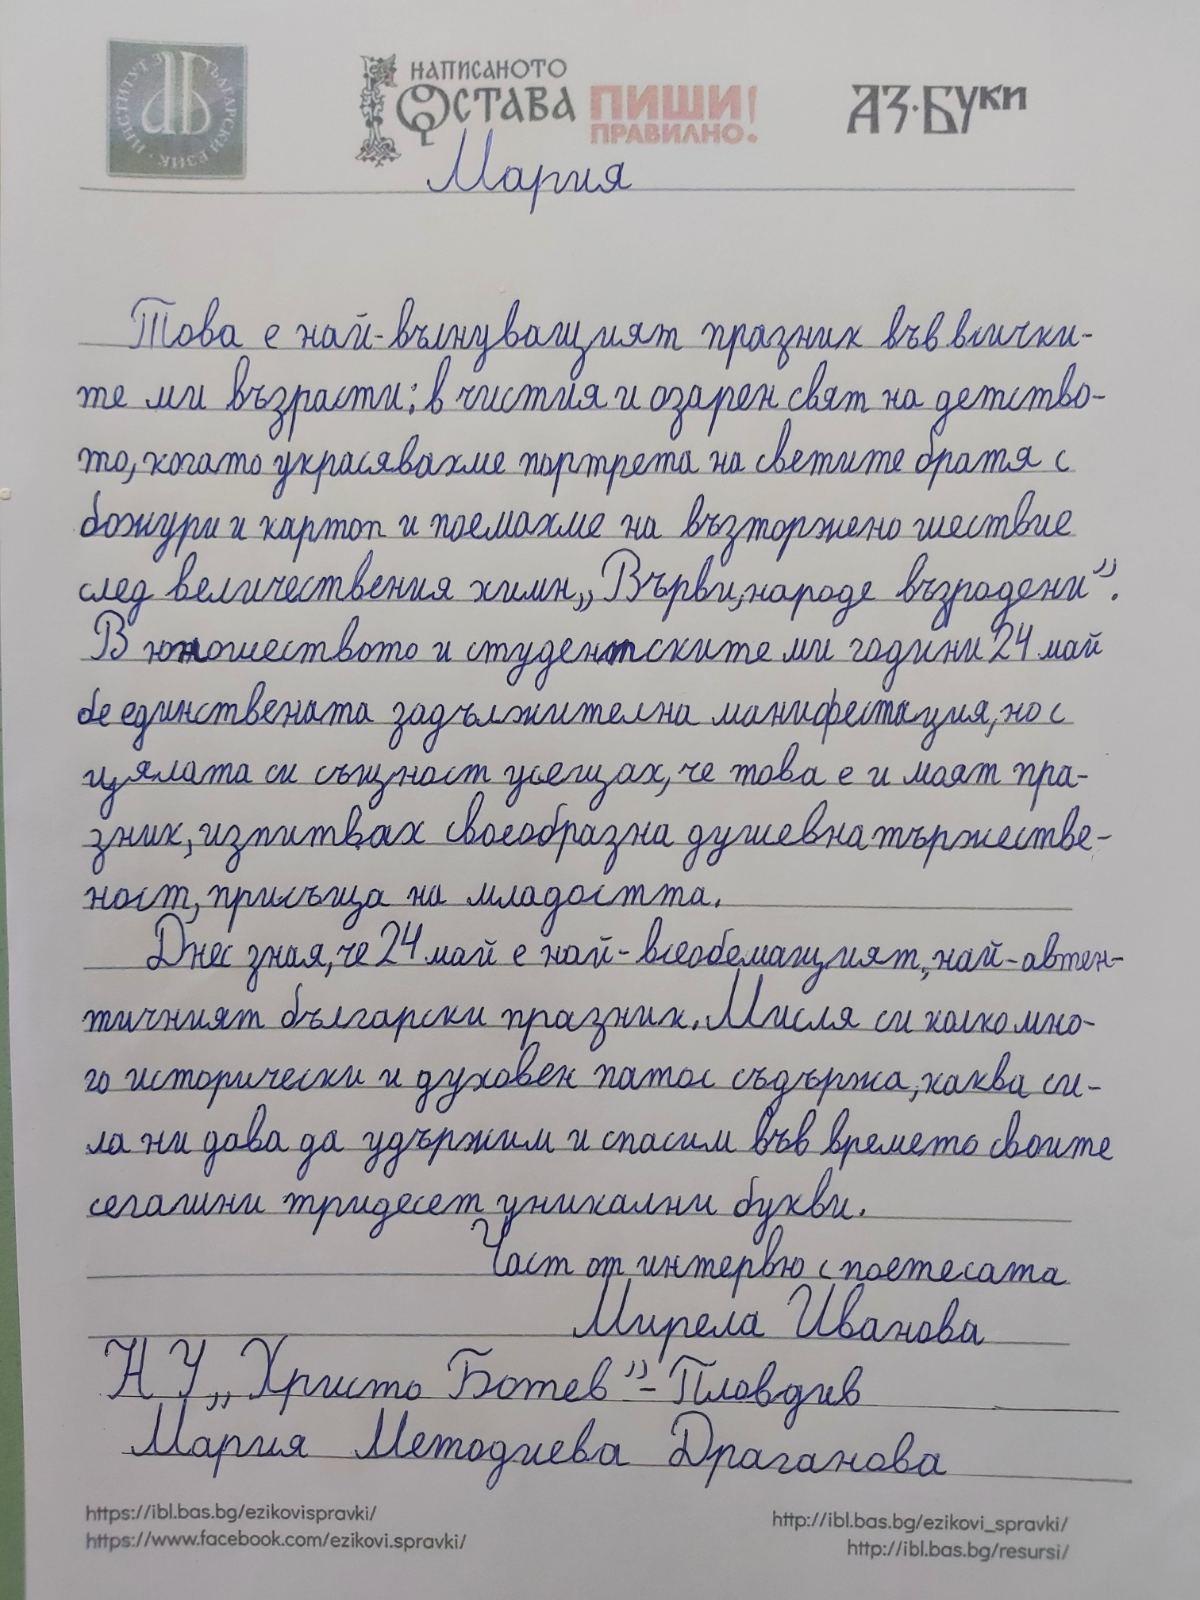 ИНСТИТУТ ЗА БЪЛГАРСКИ ЕЗИК
НАПИСАНОТО
ОСТАВА
ПИШИ
ПРАВИЛНО!
АЗ·БУКИ
Мария
Това е най-вълнуващият празник във всички-
те ми възрасти: в чистия и озарен свят на детство-
то, когато украсявахме портрета на светите братя с
божури и картоп и поемахме на възторжено шествие
след величествения химн „Върви, народе възродени”.
В юношеството и студентските ми години 24 май
бе единствената задължителна манифестация, но с
цялата си същност усещах, че това е и моят пра-
зник, изпитвах своеобразна душевна тържестве-
ност, присъща на младостта.
Днес зная, че 24 май е най-всеобемащият, най-автен-
тичният български празник. Мисля си колко мно-
го исторически и духовен патос съдържа, каква си-
ла ни дава да удържим и спасим във времето своите
сегашни тридесет уникални букви.
Част от интервю с поетесата
Мирела Иванова
НУ „Христо Ботев” - Пловдив
Мария Методиева Драганова
https://ibl.bas.bg/ezikovispravki/
https://www.facebook.com/ezikovi.spravki/
http://ibl.bas.bg/ezikovi_spravki/
http://ibl.bas.bg/resursi/